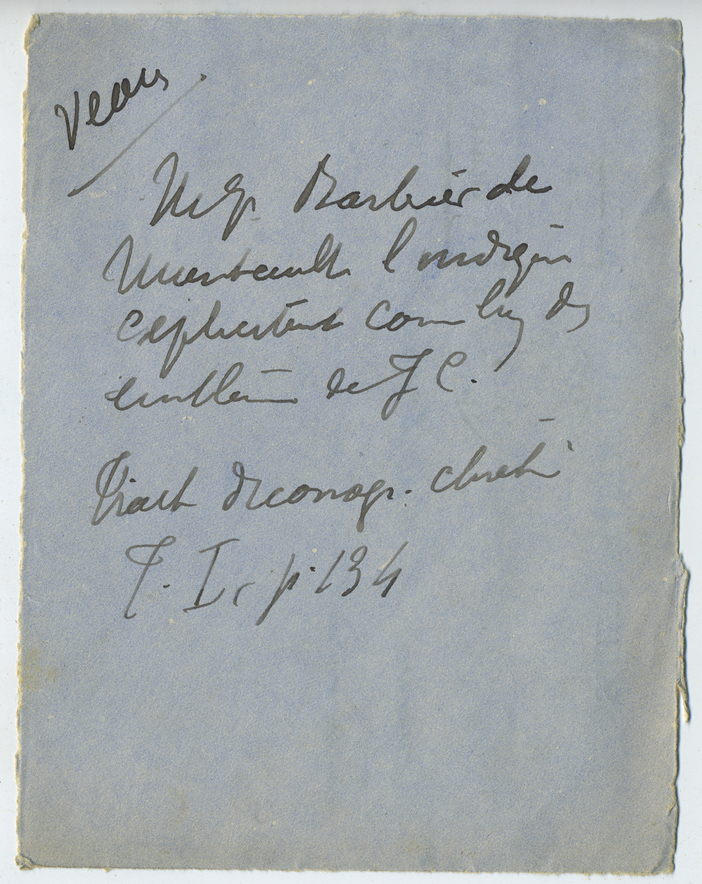 Veau
Mgr Barbier de
Montault l'indique
explicitement comme des
emblèmes de J C.
Traité d'iconogr. chréti
T. I, p. 134